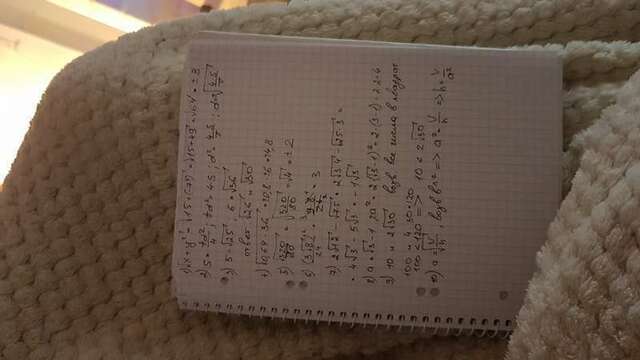 1) √x+y² = √15+(-7)² = √15+49 = √64 = ±8
2) S = πd²/4; πd² = 4·S; d² = 4·S/π; d = √4·S/π
3) 5 = √25; 6 = √36
ответ √26 и √30
4) √0,64·36 = 0,8·6 = 4,8
5) √320/√80 = √320/80 = √4 = ±2
6) (3√8)²/24 = 9·8/24 = 3
7) 2√12 - √75 = 2√3·4 - √25·3 =
= 4√3 - 5√3 = -1√3
9) 10 и 2√30 возв все числа в квадрат
100 и 4·30=120
100 < 120 => 10 < 2√30
10) a = √V/h, возв в ^2 => a² = V/h => h = V/a²